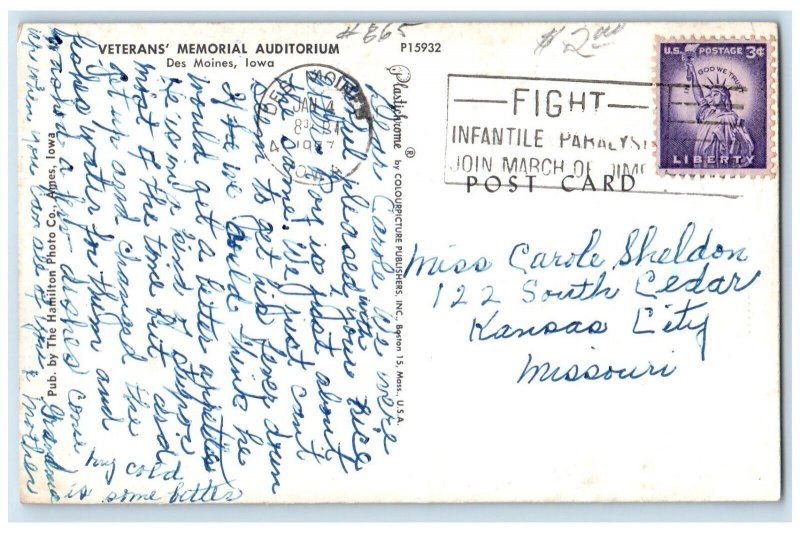 #865
$2.00
VETERANS' MEMORIAL AUDITORIUM
Des Moines, Iowa
P15932
DES MOINES
JAN 4
1957
IOWA
FIGHT
INFANTILE PARALYSIS
JOIN MARCH OF DIMES
U.S. POSTAGE 3¢
IN GOD WE TRUST
LIBERTY
POST CARD
Plastichrome ® by COLOURPICTURE PUBLISHERS, INC., Boston 15, Mass., U.S.A.
Pub. by The Hamilton Photo Co., Ames, Iowa
Dear Carole we were
pleased with your nice
is just about
the same. We just can't
seem to get his fever down
If he we could I think he
would get a better appetite
He is in a kind of stupor
most of the time but
got up and changed the
water for them and
washed a few dishes Come
up when you can all of you
Grandma & Mother
my cold
is some better
Miss Carole Sheldon
122 South Cedar
Kansas City
Missouri